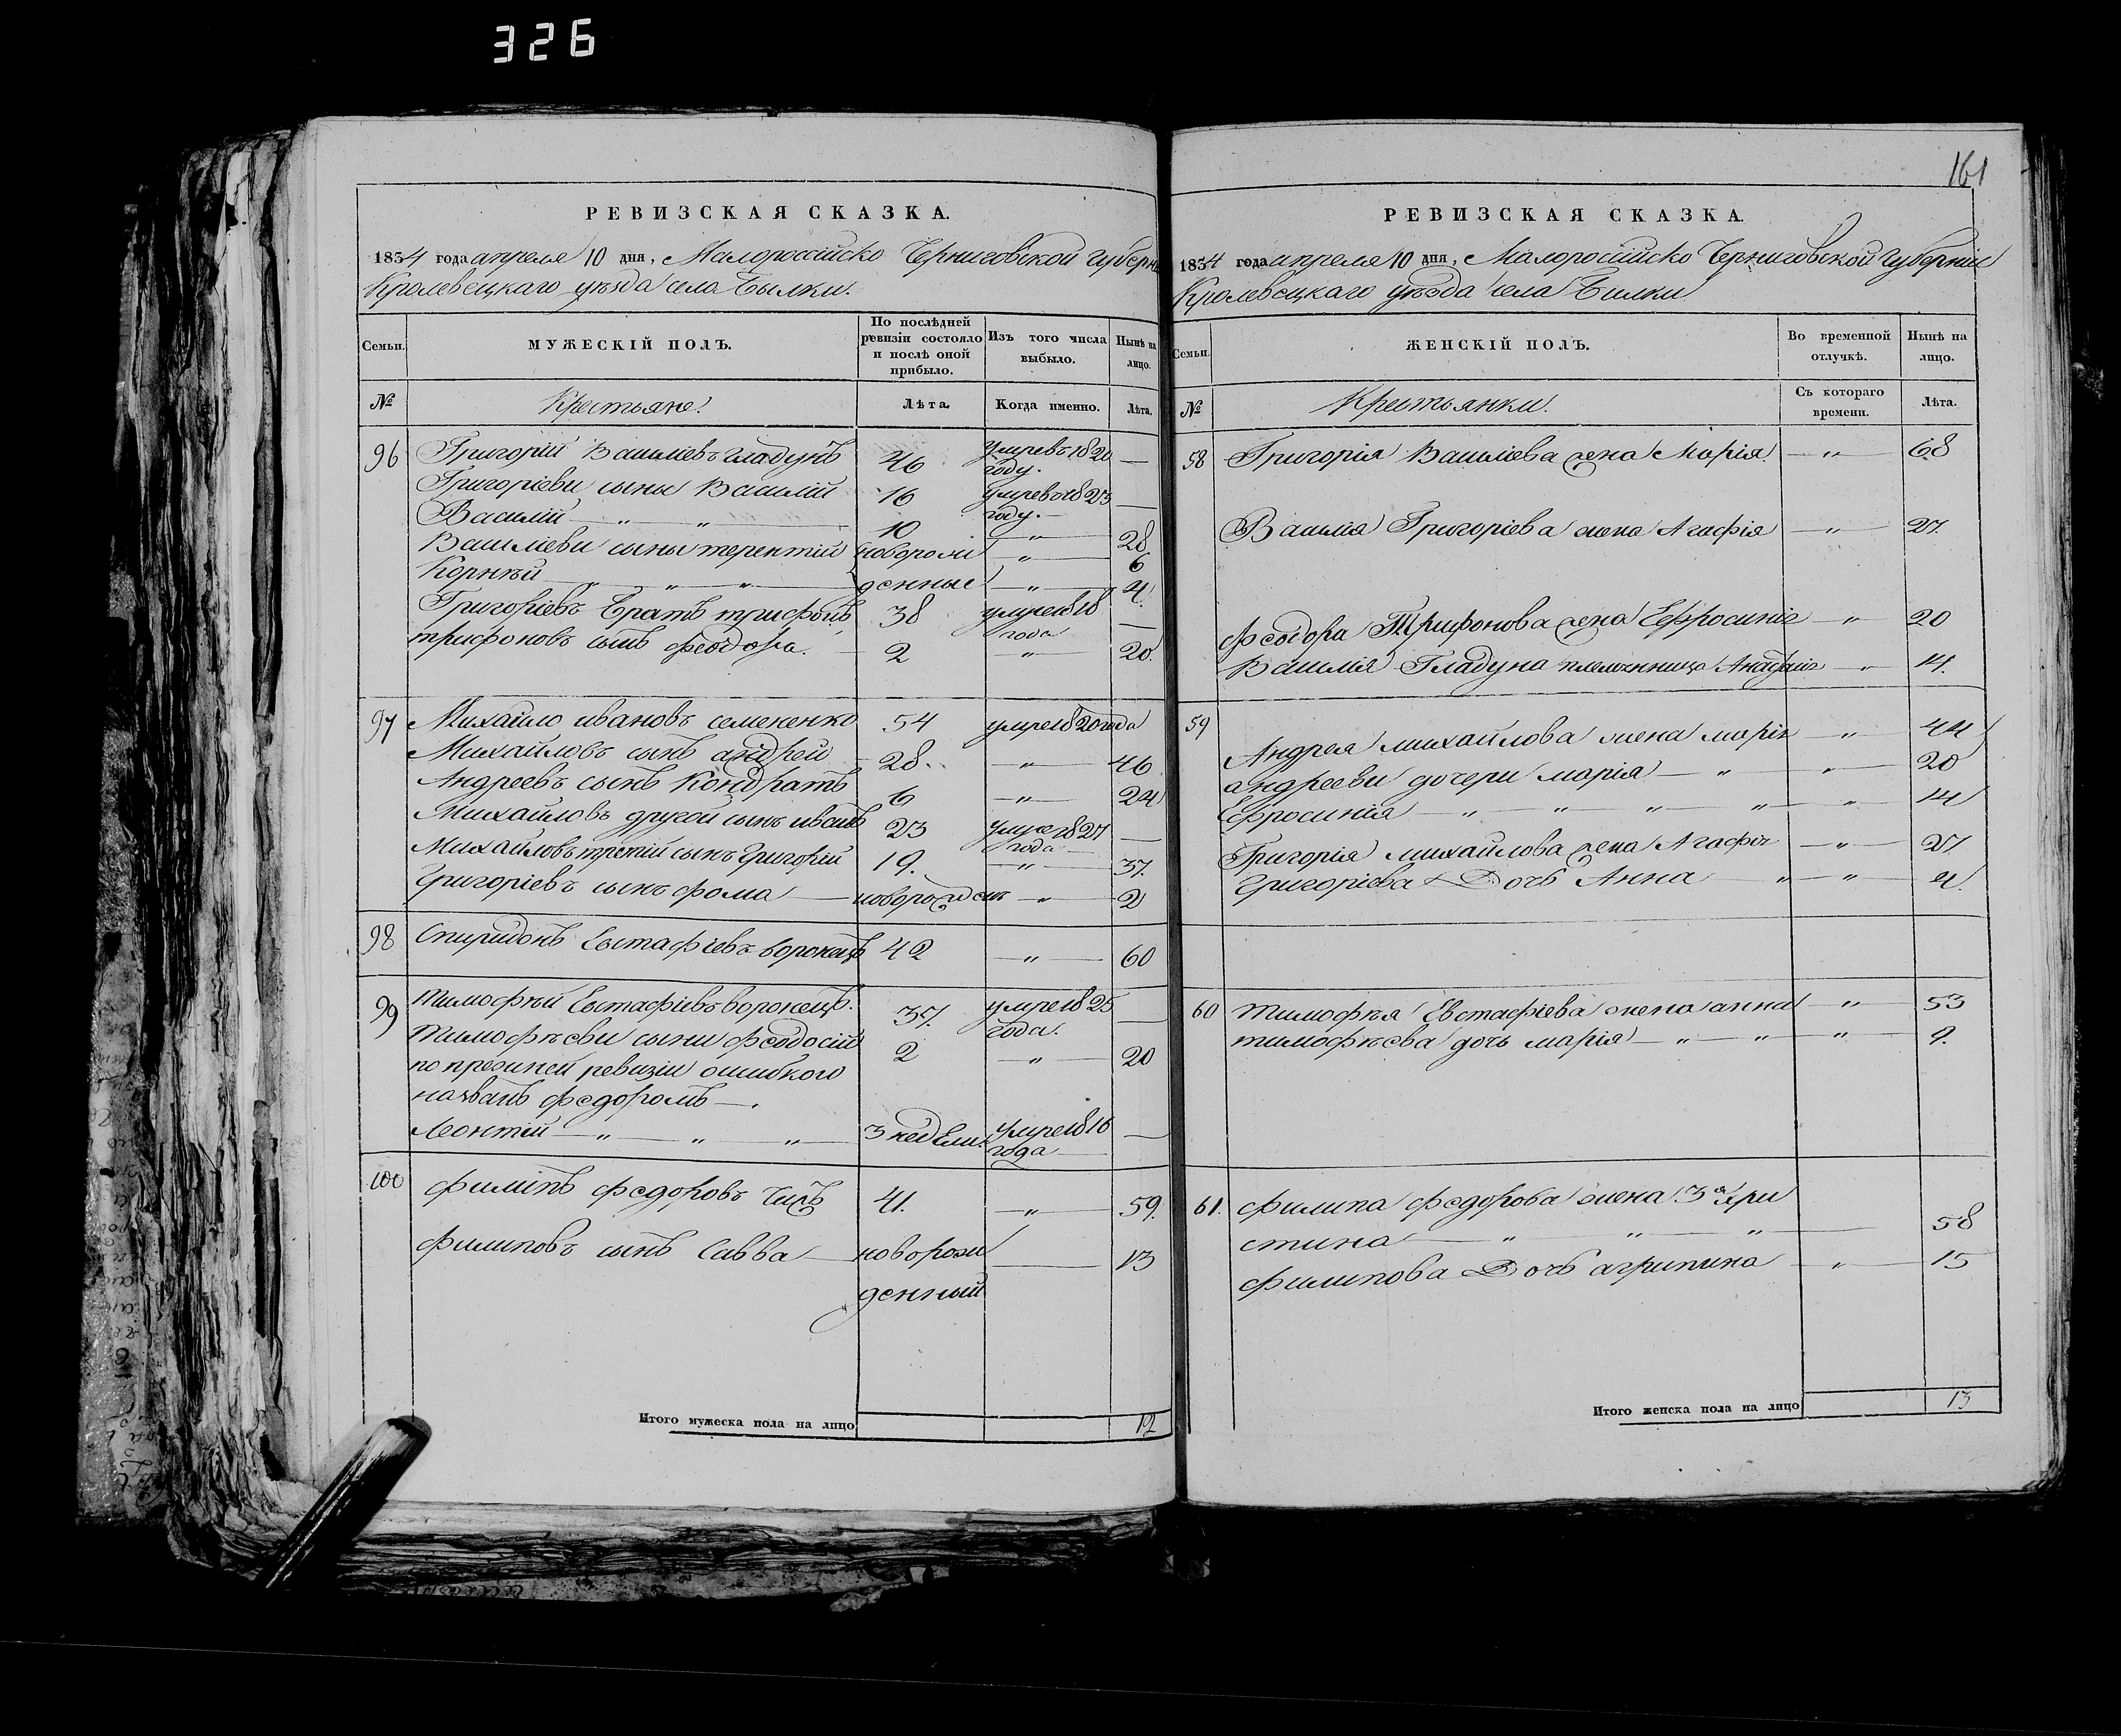 326
161
РЕВИЗСКАЯ СКАЗКА.
1834 года апреля 10 дня, Малороссійско Черниговской Губерн
Кролевецкаго уѣзда села Былки.
Семьи.
МУЖЕСКІЙ ПОЛЪ.
По послѣдней ревизіи состояло и послѣ оной прибыло.
Изъ того числа выбыло.
Нынѣ на лицо.
№
Крестьяне.
Лѣта.
Когда именно.
Лѣта.
96 Григорій Васильевъ Гладунъ 46 умре въ 1820 году. —
Григоріеви сыны Василій 16 умре въ 1823 году. —
Василій — „ — „ — 10 — „ — 28
Васильеви сыны терентій новорож — „ — 6
Корнѣй — „ — „ — „ — денные — „ — 4.
Григоріевъ братъ трифонъ 38 умре 1818 года —
трифоновъ сынъ феодора. 2 — „ — 20.
97 Михайло ивановъ семененко 54 умре 1820 года
Михайловъ сынъ андрей 28. — „ — 46
Андреевъ сынъ Кондратъ 6 — „ — 24
Михайловъ другой сынъ 23 умре 1827 года —
Михайловъ третій сынъ Григорій 19. — „ — 37.
Григоріевъ сынъ фома — новорожден — „ — 2
98 Спиридонъ Евстафіевъ воронецъ 42 — „ — 60
99 тимофѣй Евстафіевъ воронецъ. 37. умре 1825 года. —
тимофѣеви сыни феодосій 2 — „ — 20
по прежней ревизіи ошибкого
названъ федоромъ —.
леонтій — „ — „ — „ 3 недели. умре 1816 года —
100 филипъ федоровъ 41. — „ — 59.
филиповъ сынъ Савва — новорож — 13
денный
Итого мужеска пола на лицо 12
РЕВИЗСКАЯ СКАЗКА.
1834 года апреля 10 дня, Малоросійско Черниговской Губерніи
Кролевецкаго уѣзда села Билки
Семьи.
ЖЕНСКІЙ ПОЛЪ.
Во временной отлучкѣ.
Нынѣ на лицо.
№
Крестьянки.
Съ котораго времени.
Лѣта.
58 Григорія Василіева жена Марія. — „ — 68
Василія Григоріева жена Агафія — „ — 27.
Феодора Трифонова жена Ефросинія — „ — 20
Василія Гладуна племянница — „ — 14.
59 Андрея михайлова жена марія — „ — 44
андрееви дочери марія — „ — „ — 20
Ефросинія — „ — „ — „ — „ — „ — 14
Григорія михайлова жена Агафія — „ — 27
Григоріева Дочь Анна „ — „ — 4.
60 тимофѣя Евстафіева жена анна — „ — 53
тимофѣева дочь марія — „ — „ — „ — 9.
61. филипа федорова жена 3я хри
стина — „ — „ — „ — 58
филипова Дочь агрипина — „ — 15
Итого женска пола на лицо 13